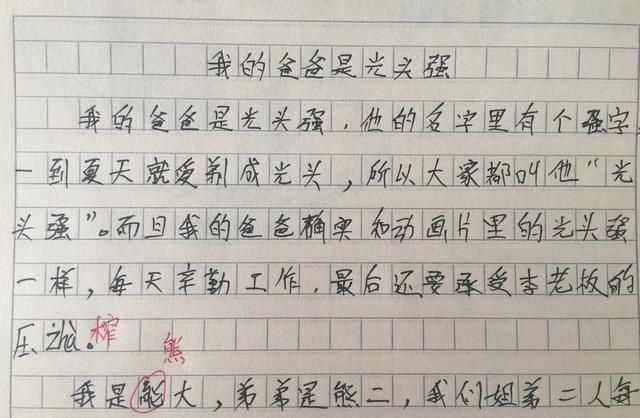 我的爸爸是光头强
我的爸爸是光头强，他的名字里有个强字，
一到夏天就爱剃成光头，所以大家都叫他“光
头强”。而且我的爸爸确实和动画片里的光头强
一样，每天辛勤工作，最后还要承受李老板的
压zhà。榨
熊
我是能大，弟弟是熊二，我们姐弟二人每